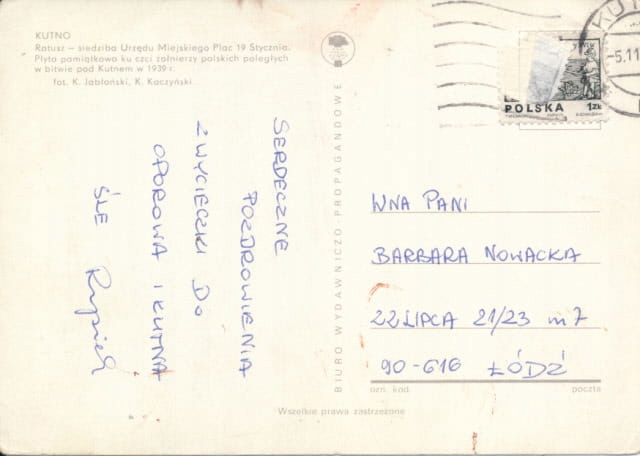 KUTNO
Ratusz – siedziba Urzędu Miejskiego Plac 19 Stycznia.
Płyta pamiątkowa ku czci żołnierzy polskich poległych
w bitwie pod Kutnem w 1939 r.
fot. K. Jabłoński, K. Kaczyński
KUTN
-5.11
POLSKA 1ZŁ
SERDECZNE
POZDROWIENIA
Z WYCIECZKI DO
OPOROWA I KUTNA
ŚLE
BIURO WYDAWNICZO-PROPAGANDOWE
WNA PANI
BARBARA NOWACKA
22 LIPCA 21/23 m 7
90-616 ŁÓDŹ
ozn. kod. poczta
Wszelkie prawa zastrzeżone